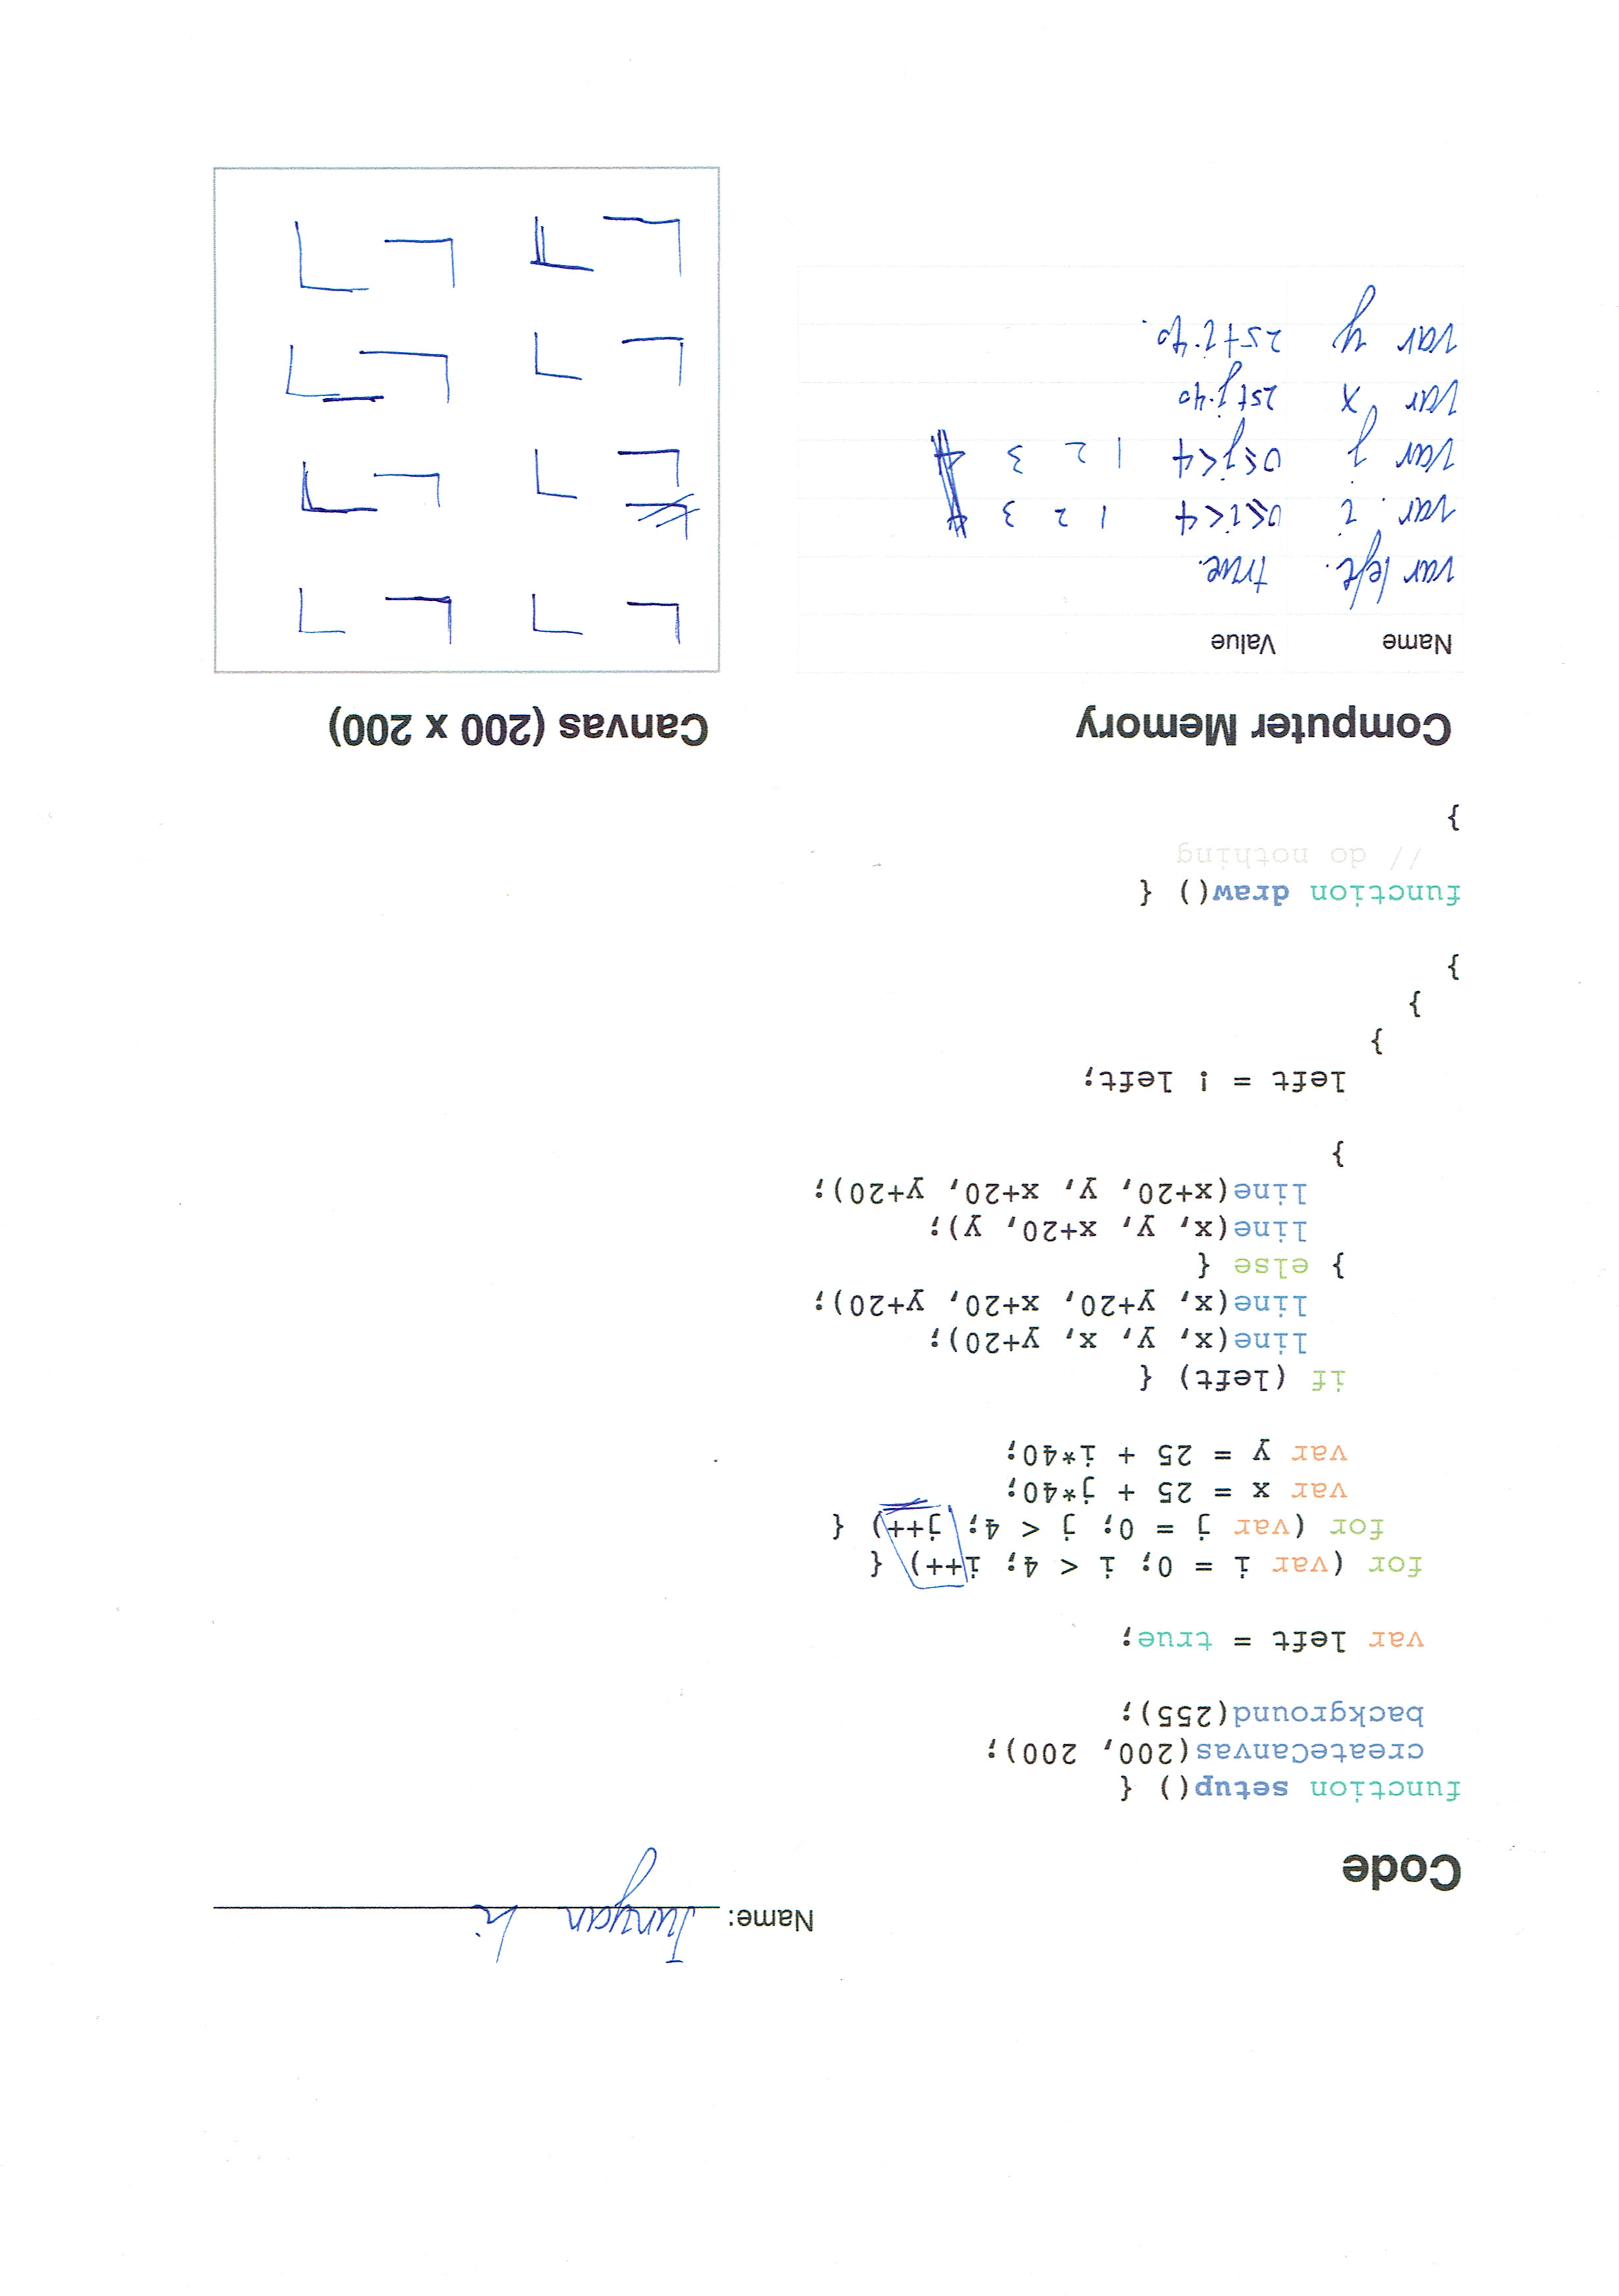 Name: Junyan Li
Code
function setup() {
  createCanvas(200, 200);
  background(255);
  var left = true;
  for (var i = 0; i < 4; i++) {
    for (var j = 0; j < 4; j++) {
      var x = 25 + j*40;
      var y = 25 + i*40;
      if (left) {
        line(x, y, x, y+20);
        line(x, y+20, x+20, y+20);
      } else {
        line(x, y, x+20, y);
        line(x+20, y, x+20, y+20);
      }
      left = ! left;
    }
  }
}
function draw() {
  // do nothing
}
Computer Memory Canvas (200 x 200)
Name Value
var left. true.
var i 0≤i<4 1 2 3
var j 0≤j<4 1 2 3
var x 25+j·40
var y 25+i·40.